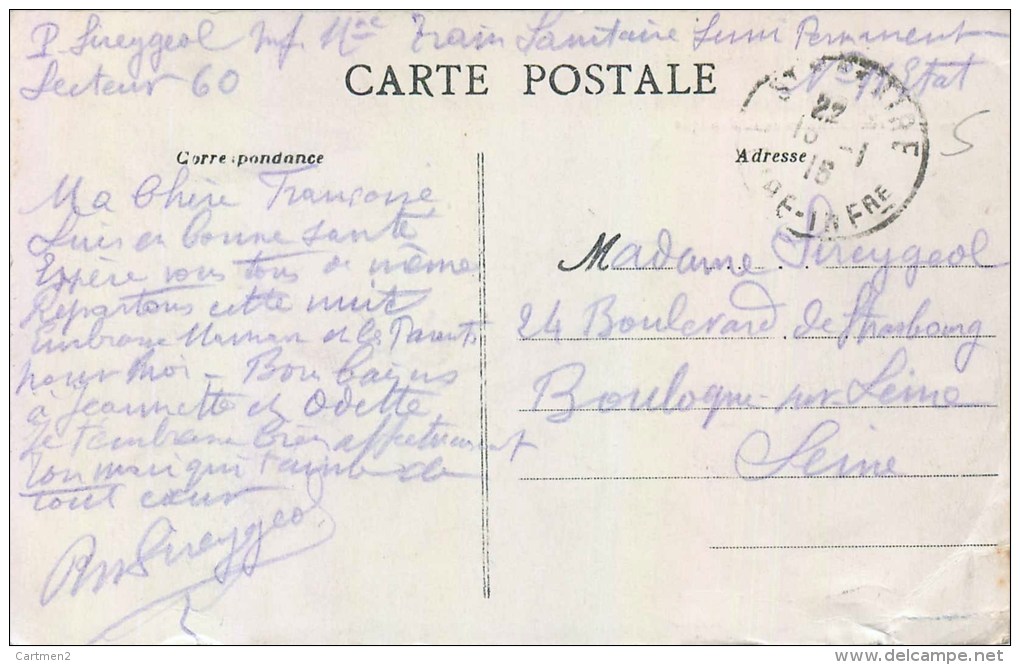 P. Sireygeol Inf. Mre Train Sanitaire Semi Permanent
Secteur 60 No Etat
CARTE POSTALE
22
15 -1
16
RE-INFRE
5
Correspondance
Adresse
Ma Chère Françoise
Suis en bonne santé
Espère vous tous de même
Repartons cette nuit
Embrasse Maman et les Parents
pour Moi - Bons baisers
à Jeannette et Odette
Je t'embrasse bien affectueusement
ton mari qui t'aime de
tout cœur
Sireygeol
Madame Sireygeol
24 Boulevard de Strasbourg
Boulogne-sur-Seine
Seine
Cartmen2
delcampe.net